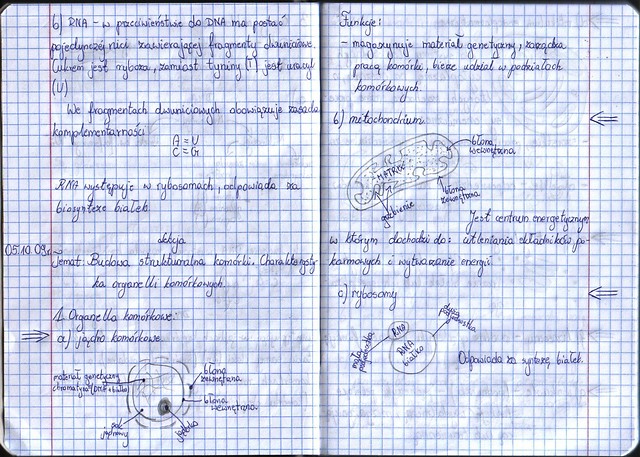 b) RNA - w przeciwieństwie do DNA ma postać
pojedynczej nici zawierającej fragmenty dwuniciowe.
Cukrem jest ryboza, zamiast tyminy (T) jest uracyl
(U)
We fragmentach dwuniciowych obowiązuje zasada
komplementarności
A = U
C = G
RNA występuje w rybosomach, odpowiada za
biosyntezę białek
lekcja
05.10.09r.
Temat: Budowa strukturalna komórki. Charakterysty
ka organelli komórkowych.
1. Organella komórkowe:
a) jądro komórkowe
materiał genetyczny
chromatyna (DNA + białko)
błona
zewnętrzna
błona
wewnętrzna
sok
jądrowy
jąderko
Funkcje:
- magazynuje materiał genetyczny, zarządza
pracą komórki, bierze udział w podziałach
komórkowych.
b) mitochondrium
MATRIX
błona
wewnętrzna
błona
zewnętrzna
grzebienie
Jest centrum energetycznym
w którym dochodzi do: utleniania składników po-
karmowych i wytwarzanie energii
c) rybosomy
duża
podjednostka
mała
podjednostka
RNA
białko
Odpowiada za syntezę białek.